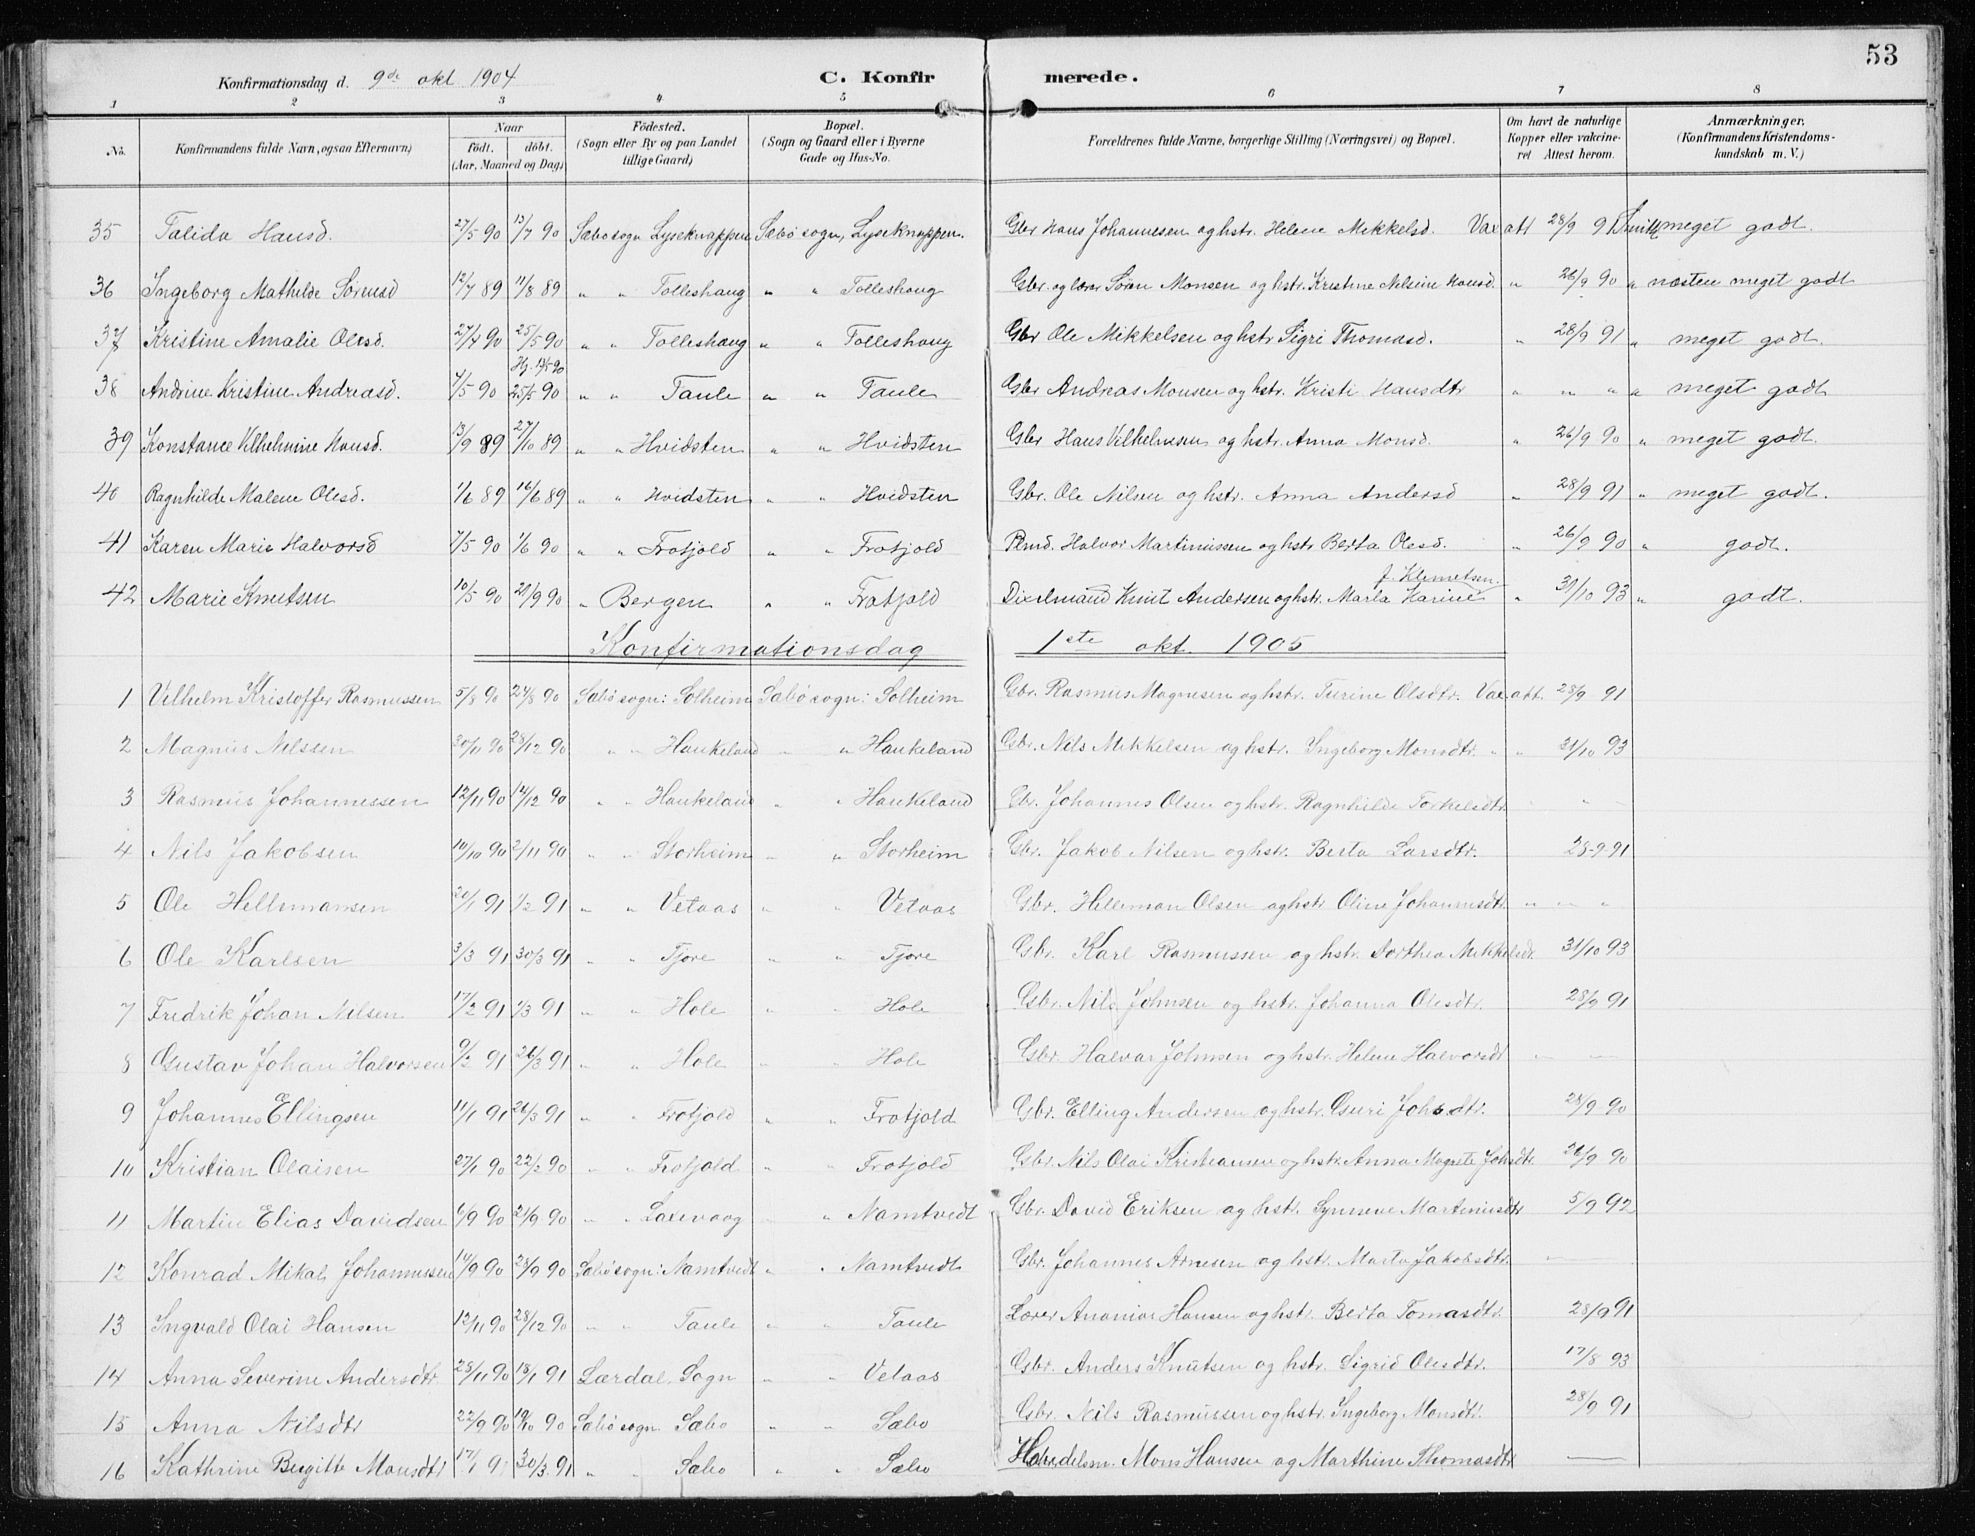 53
Konfirmationsdag d. 9de okt 1904 C. Konfir merede.
1 2 3 4 5 6 7 8
No. Konfirmandens fulde Navn, ogsaa Efternavn) Naar födt. döbt. (Aar, Maaned og Dag) Födested. (Sogn eller By og paa Landet tillige Gaard) Bopæl. (Sogn og Gaard eller i Byerne Gade og Hus-No. Forældrenes fulde Navne, borgerlige Stilling (Næringsvei) og Bopæl. Om havt de naturlige Kopper eller vakcineret Attest herom. Anmærkninger. (Konfirmandens Kristendomskundskab m. V.)
35 Talida Hansd. 27/5 90 13/7 90 Sæbø sogn Lyseknappen Sæbø sogn, Lyseknappen. Gbr Hans Johannesen og hstr. Helene Mikkelsd. Vax att 28/9 91 meget godt.
36 Ingeborg Mathilde Sørensd 12/7 89 11/8 89 " " Tolleshaug " " Tolleshaug Gbr. og lærer Søren Monsen og hstr. Kristine Nilsine Hansd. " 26/9 90 " næsten meget godt
37 Kristine Amalie Olesd. 27/4 90 25/5 90 " " Tolleshaug " " Tolleshaug Gbr Ole Mikkelsen og hstr Sigri Thomasd. " 28/9 91 " meget godt.
38 Andrine Kristine Andreasd. 4/5 90 25/5 90 " " Taule " " Taule Gbr Andreas Monsen og hstr. Kristi Hansdtr " " " " meget godt
39 Konstance Vilhelmine Hansd. 13/9 89 27/10 89 " " Hvidsten " " Hvidsten Gbr Hans Vilhelmsen og hstr. Anna Monsd. " 26/9 90 " meget godt.
40 Ragnhilde Malene Olesd. 1/6 89 16/6 89 " " Hvidsten " " Hvidsten Gbr. Ole Nilsen og hstr. Anna Andersd " 28/9 91 " meget godt.
41 Karen Marie Halvorsd 7/5 90 1/6 90 " " Frotjold " " Frotjold Plmd. Halvor Martinussen og hstr Berta Olesd. " 26/9 90 " godt.
42 Marie Knutsen 10/5 90 21/9 90 " Bergen " " Frotjold Dixelmand Knut Andersen og hstr. Marta Karine f. Klemetsen. " 31/10 93 " godt.
Konfirmationsdag 1ste okt. 1905
1 Vilhelm Kristoffer Rasmussen 5/8 90 24/8 90 Sæbø sogn: Solheim Sæbø sogn: Solheim Gbr. Rasmus Magnesen og hstr. Turine Olsdtr. Vax att. 28/9 91
2 Magnus Nilssen 30/11 90 28/12 90 " " Haukeland " " Haukeland Gbr. Nils Mikkelsen og hstr. Ingeborg Monsdtr. " " 31/10 93
3 Rasmus Johannessen 12/11 90 14/12 90 " " Haukeland " " Haukeland Gbr. Johannes Olsen og hstr. Ragnhilde Torkelsdtr. " "
4 Nils Jakobsen 10/10 90 2/11 90 " " Storheim " " Storheim Gbr. Jakob Nilsen og hstr. Berta Larsdtr. 28-9-91
5 Ole Hellemansen 20/1 91 1/2 91 " " Vetaas " " Vetaas Gbr. Helleman Olsen og hstr Oline Johannesdtr. " " "
6 Ole Karlsen 3/3 91 30/3 91 " " Tjore " " Tjore Gbr. Karl Rasmussen og hstr. Dorthea Mikkelsdr. 31/10 93
7 Fredrik Johan Nilsen 17/2 91 1/3 91 " " Hole " " Hole Gbr. Nils Johnsen og hstr. Johanna Olesdtr. 28/9 91
8 Gustav Johan Halvorsen 9/2 91 26/3 91 " " Hole " " Hole Gbr. Halvar Johnsen og hstr. Helene Halvorsdt " "
9 Johannes Ellingsen 11/1 91 26/3 91 " " Frotjold " " Frotjold Gbr. Elling Andersen og hstr. Guri Johsdtr. 28/9 90
10 Kristian Olaisen 27/1 90 22/2 90 " " Frotjold " " Frotjold Gbr. Nils Olai Kristiansen og hstr. Anna Magrete Johsdtr. 26/9 90
11 Martin Elias Davidsen 6/9 90 21/9 90 " " Laxevaag " " Namtvedt Gbr. David Eriksen og hstr. Synneve Martinusdtr 5/9 92
12 Konrad Mikal Johannessen 14/9 90 28/9 90 Sæbø sogn: Namtvedt " " Namtvedt Gbr. Johannes Arnesen og hstr. Marta Jakobsdtr.
13 Ingvald Olai Hansen 12/11 90 28/12 90 " " Taule " " Taule Lærer Ananias Hansen og hstr. Berta Tomasdtr. 28/9 91
14 Anna Severine Andersdtr. 25/11 90 18/1 91 Lærdal, Sogn " " Vetaas Gbr. Anders Knutsen og hstr. Sigrid Olesdtr. 17/8 93
15 Anna Nilsdtr 22/9 90 19/10 90 Sæbø sogn. Sæbø " " Sæbø Gbr. Nils Rasmussen og hstr. Ingeborg Monsdtr. 28/9 91
16 Kathrine Birgitte Monsdtr 17/1 91 30/3 91 " " Sæbo " " Sæbo Handelsm. Mons Hansen og Marthine Thomasdtr